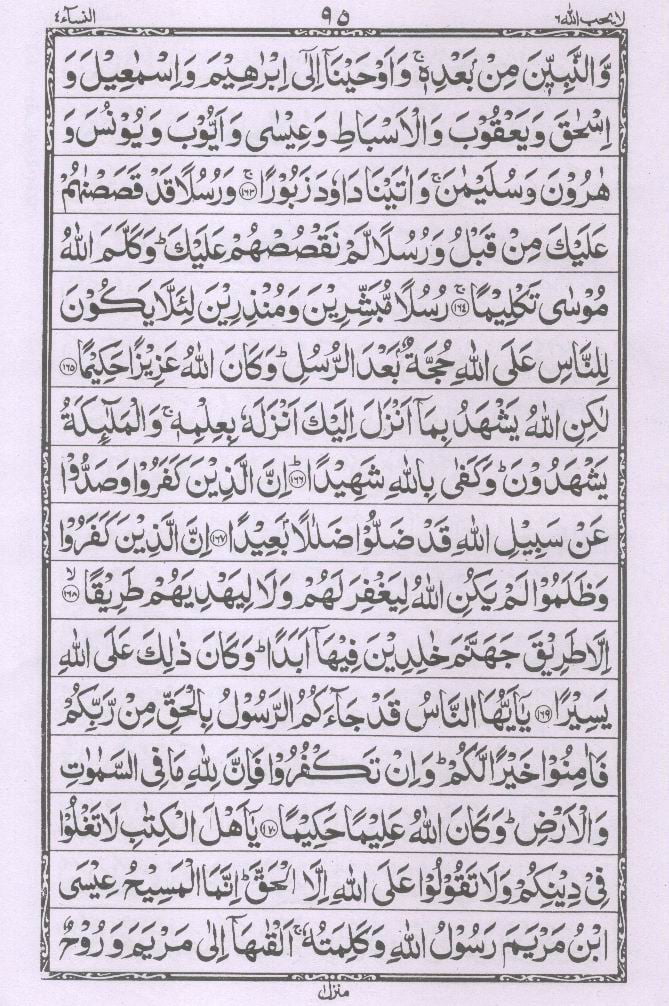 لا یحب الله ٦ ٩٥ النساء ٤
وَّالنَّبِیّٖنَ مِنْۢ بَعْدِهٖ ۚ وَاَوْحَیْنَاۤ اِلٰۤی اِبْرٰهِیْمَ وَاِسْمٰعِیْلَ وَ
اِسْحٰقَ وَیَعْقُوْبَ وَالْاَسْبَاطِ وَعِیْسٰی وَاَیُّوْبَ وَیُوْنُسَ وَ
هٰرُوْنَ وَسُلَیْمٰنَ ۚ وَاٰتَیْنَا دَاوٗدَ زَبُوْرًا ۚ﴿۱۶۳﴾ وَرُسُلًا قَدْ قَصَصْنٰهُمْ
عَلَیْكَ مِنْ قَبْلُ وَرُسُلًا لَّمْ نَقْصُصْهُمْ عَلَیْكَ ؕ وَكَلَّمَ اللّٰهُ
مُوْسٰی تَكْلِیْمًا ۚ﴿۱۶۴﴾ رُسُلًا مُّبَشِّرِیْنَ وَمُنْذِرِیْنَ لِئَلَّا یَكُوْنَ
لِلنَّاسِ عَلَی اللّٰهِ حُجَّةٌۢ بَعْدَ الرُّسُلِ ؕ وَكَانَ اللّٰهُ عَزِیْزًا حَكِیْمًا ﴿۱۶۵﴾
لٰكِنِ اللّٰهُ یَشْهَدُ بِمَاۤ اَنْزَلَ اِلَیْكَ اَنْزَلَهٗ بِعِلْمِهٖ ۚ وَالْمَلٰٓئِكَةُ
یَشْهَدُوْنَ ؕ وَكَفٰی بِاللّٰهِ شَهِیْدًا ؕ﴿۱۶۶﴾ اِنَّ الَّذِیْنَ كَفَرُوْا وَصَدُّوْا
عَنْ سَبِیْلِ اللّٰهِ قَدْ ضَلُّوْا ضَلٰلًۢا بَعِیْدًا ﴿۱۶۷﴾ اِنَّ الَّذِیْنَ كَفَرُوْا
وَظَلَمُوْا لَمْ یَكُنِ اللّٰهُ لِیَغْفِرَ لَهُمْ وَلَا لِیَهْدِیَهُمْ طَرِیْقًا ۙ﴿۱۶۸﴾
اِلَّا طَرِیْقَ جَهَنَّمَ خٰلِدِیْنَ فِیْهَاۤ اَبَدًا ؕ وَكَانَ ذٰلِكَ عَلَی اللّٰهِ
یَسِیْرًا ﴿۱۶۹﴾ یٰۤاَیُّهَا النَّاسُ قَدْ جَآءَكُمُ الرَّسُوْلُ بِالْحَقِّ مِنْ رَّبِّكُمْ
فَاٰمِنُوْا خَیْرًا لَّكُمْ ؕ وَاِنْ تَكْفُرُوْا فَاِنَّ لِلّٰهِ مَا فِی السَّمٰوٰتِ
وَالْاَرْضِ ؕ وَكَانَ اللّٰهُ عَلِیْمًا حَكِیْمًا ﴿۱۷۰﴾ یٰۤاَهْلَ الْكِتٰبِ لَا تَغْلُوْا
فِیْ دِیْنِكُمْ وَلَا تَقُوْلُوْا عَلَی اللّٰهِ اِلَّا الْحَقَّ ؕ اِنَّمَا الْمَسِیْحُ عِیْسَی
ابْنُ مَرْیَمَ رَسُوْلُ اللّٰهِ وَكَلِمَتُهٗ ۚ اَلْقٰىهَاۤ اِلٰی مَرْیَمَ وَرُوْحٌ
منزل ١